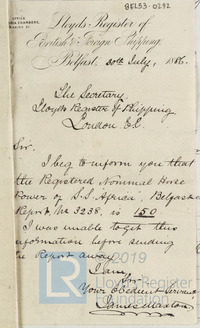 BELS3-0292
OFFICE
Lloyds Register of
British & Foreign Shipping.
Belfast, 30th July, 1886.
The Secretary
Lloyds Register of Shipping,
London EC
Sir,
I beg to inform you that
the Registered Nominal Horse
Power of S.S. Africa, Belfast
Report No 3238, is 150
I was unable to get this
information before sending
the Report away
I am,
Sir,
Your Obedient Servant
James Maxton
©2019
LR
Lloyd's Register
Foundation